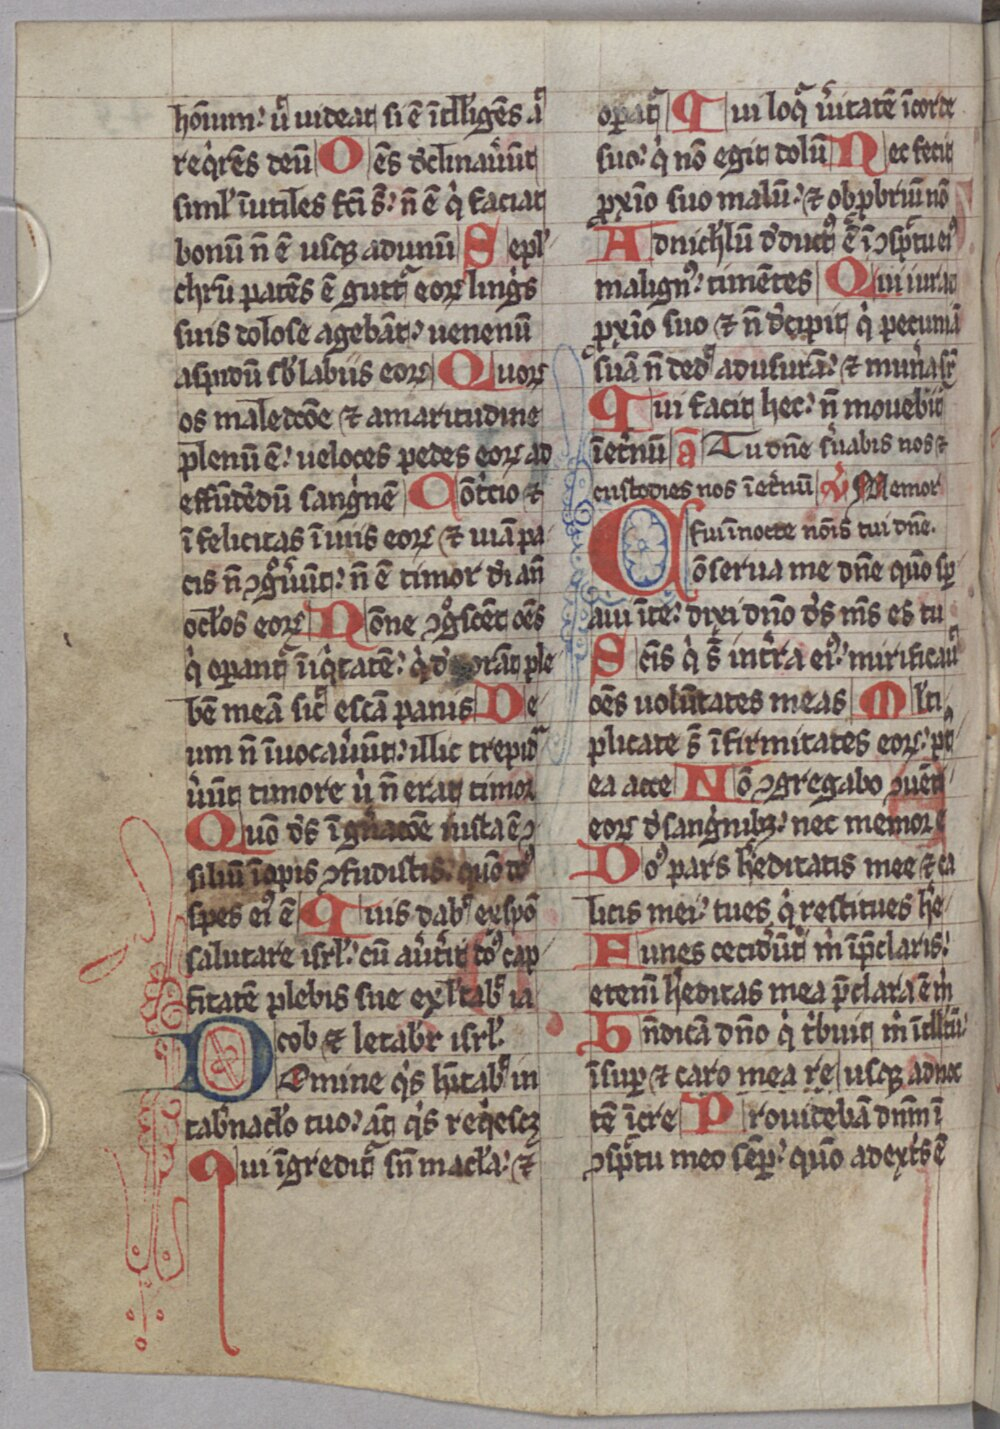 hōium: ut᷑ uideat si ē ītll'igēs a᷑
reqͥrēs deū O ēs d'clinauer̄t
siml' īutiles fc̄i s̄: n̄ ē qͥ faciat
bonū n̄ ē usqꝫ ad unū Sepl'
chrū patēs ē gutt᷑ eoꝝ lingͥs
suis dolose agebāt: uenenū
aspidū sb' labiis eoꝝ Quoꝝ
os maledcōe ⁊ amaritudine
plenū ē: ueloces pedes eoꝝ ad
effūdēdū sangͥnē Cōtͥcio ⁊
īfelicitas ī uiis eoꝝ ⁊ uiā pa
cis n̄ ꝯgͦuer̄t: n̄ ē timor di an̄
oclos eoꝝ Nōne ꝯgͦscēt oēs
qͥ opant᷑ īiqͥtatē: qͥ d'uorāt ple
bē meā sic᷑ escā panis De
um n̄ īuocauer̄t: illic trepid᷑
uer̄t timore uͥ n̄ erat timor
Quō ds̄ ī gn̄acōe iusta ē ꝯ
siliū īopis ꝯfudistis: quō dn̄s
spes eiꝰ ē Quis dab᷑ ex syō
salutare isrl': cū auͥt'it dn̄s cap
titatē plebis sue exl'tab᷑ ia
cob ⁊ letab᷑ isrl'.
Domine qͥs hītab᷑ in
tab'nac'lo tuo: at᷑ qͥs reqͥescꝫ
Qui īgredit᷑ sn̄ mac'la: ⁊
opat᷑ Qui loqͥ᷑ u'itatē ī corde
suo: qͥ nō egit dolū Nec fecit
ꝓxīo suo malū: ⁊ obꝓbriū nō
Ad nichl'ū d'ductꝰ ē ī ꝯsp̄tu eiꝰ
malignꝰ: timētes Qui iurat
ꝓxīo suo ⁊ n̄ d'cipit qͥ pecuniā
suā n̄ ded᷑ ad usurā: ⁊ mun'a sr̄
Qui facit hec: n̄ mouebit᷑
ī et'nū a᷑ Tu dn̄e s'uabis nos ⁊
custodies nos ī et'nū ꝟ Memor
fui ī nocte noīs tui dn̄e.
Cōserua me dn̄e qm̄ sp̄
aui ī te: dixi dn̄o ds̄ ms̄ es tu
Scīs qͥ s̄ ī t'ra eiꝰ: mirificau᷑
oēs uolūtates meas Ml'ti
plicate s̄ īfirmitates eoꝝ: pꝰ
ea acce Nō ꝯgregabo ꝯuēt
eoꝝ d' sangͥnibꝫ: nec memor e
Dn̄s pars h'editatis mee ⁊ ca
licis mei: tu es qͥ restitues h'e
Funes cecid'ūt m̄ ī p̄claris:
etenī h'editas mea p̄clara ē m̄
Bn̄dicā dn̄o qͥ tͥbuit m̄ ītll'tū:
īsuꝑ ⁊ caro mea re usqꝫ ad noc
tē īcre Prouidebā dnm̄ ī
ꝯsp̄tu meo sēꝑ: quō a dext'is ē